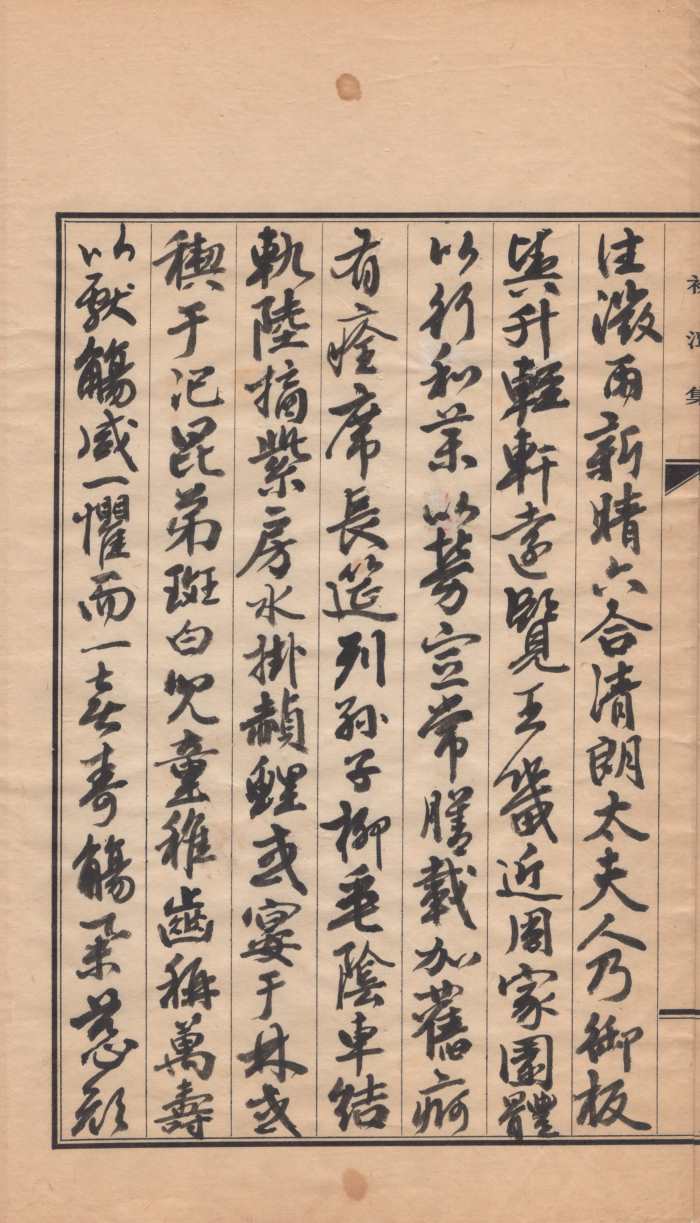 往微雨新晴六合清朗太夫人乃御板
輿升輕軒遠覽王畿近周家園體
以行和藥以勞宣常膳載加舊痾
有痊席長筵列孫子柳垂陰車結
軌陸摘紫房水掛赬鯉或宴于林或
禊于汜昆弟斑白兒童稚齒稱萬壽
以獻觴咸一懼而一喜壽觴舉慈顏